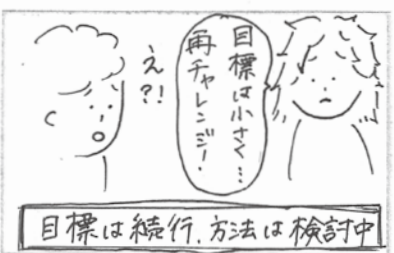 目標は小さく…
再チャレンジ！
え？！
目標は続行、方法は検討中